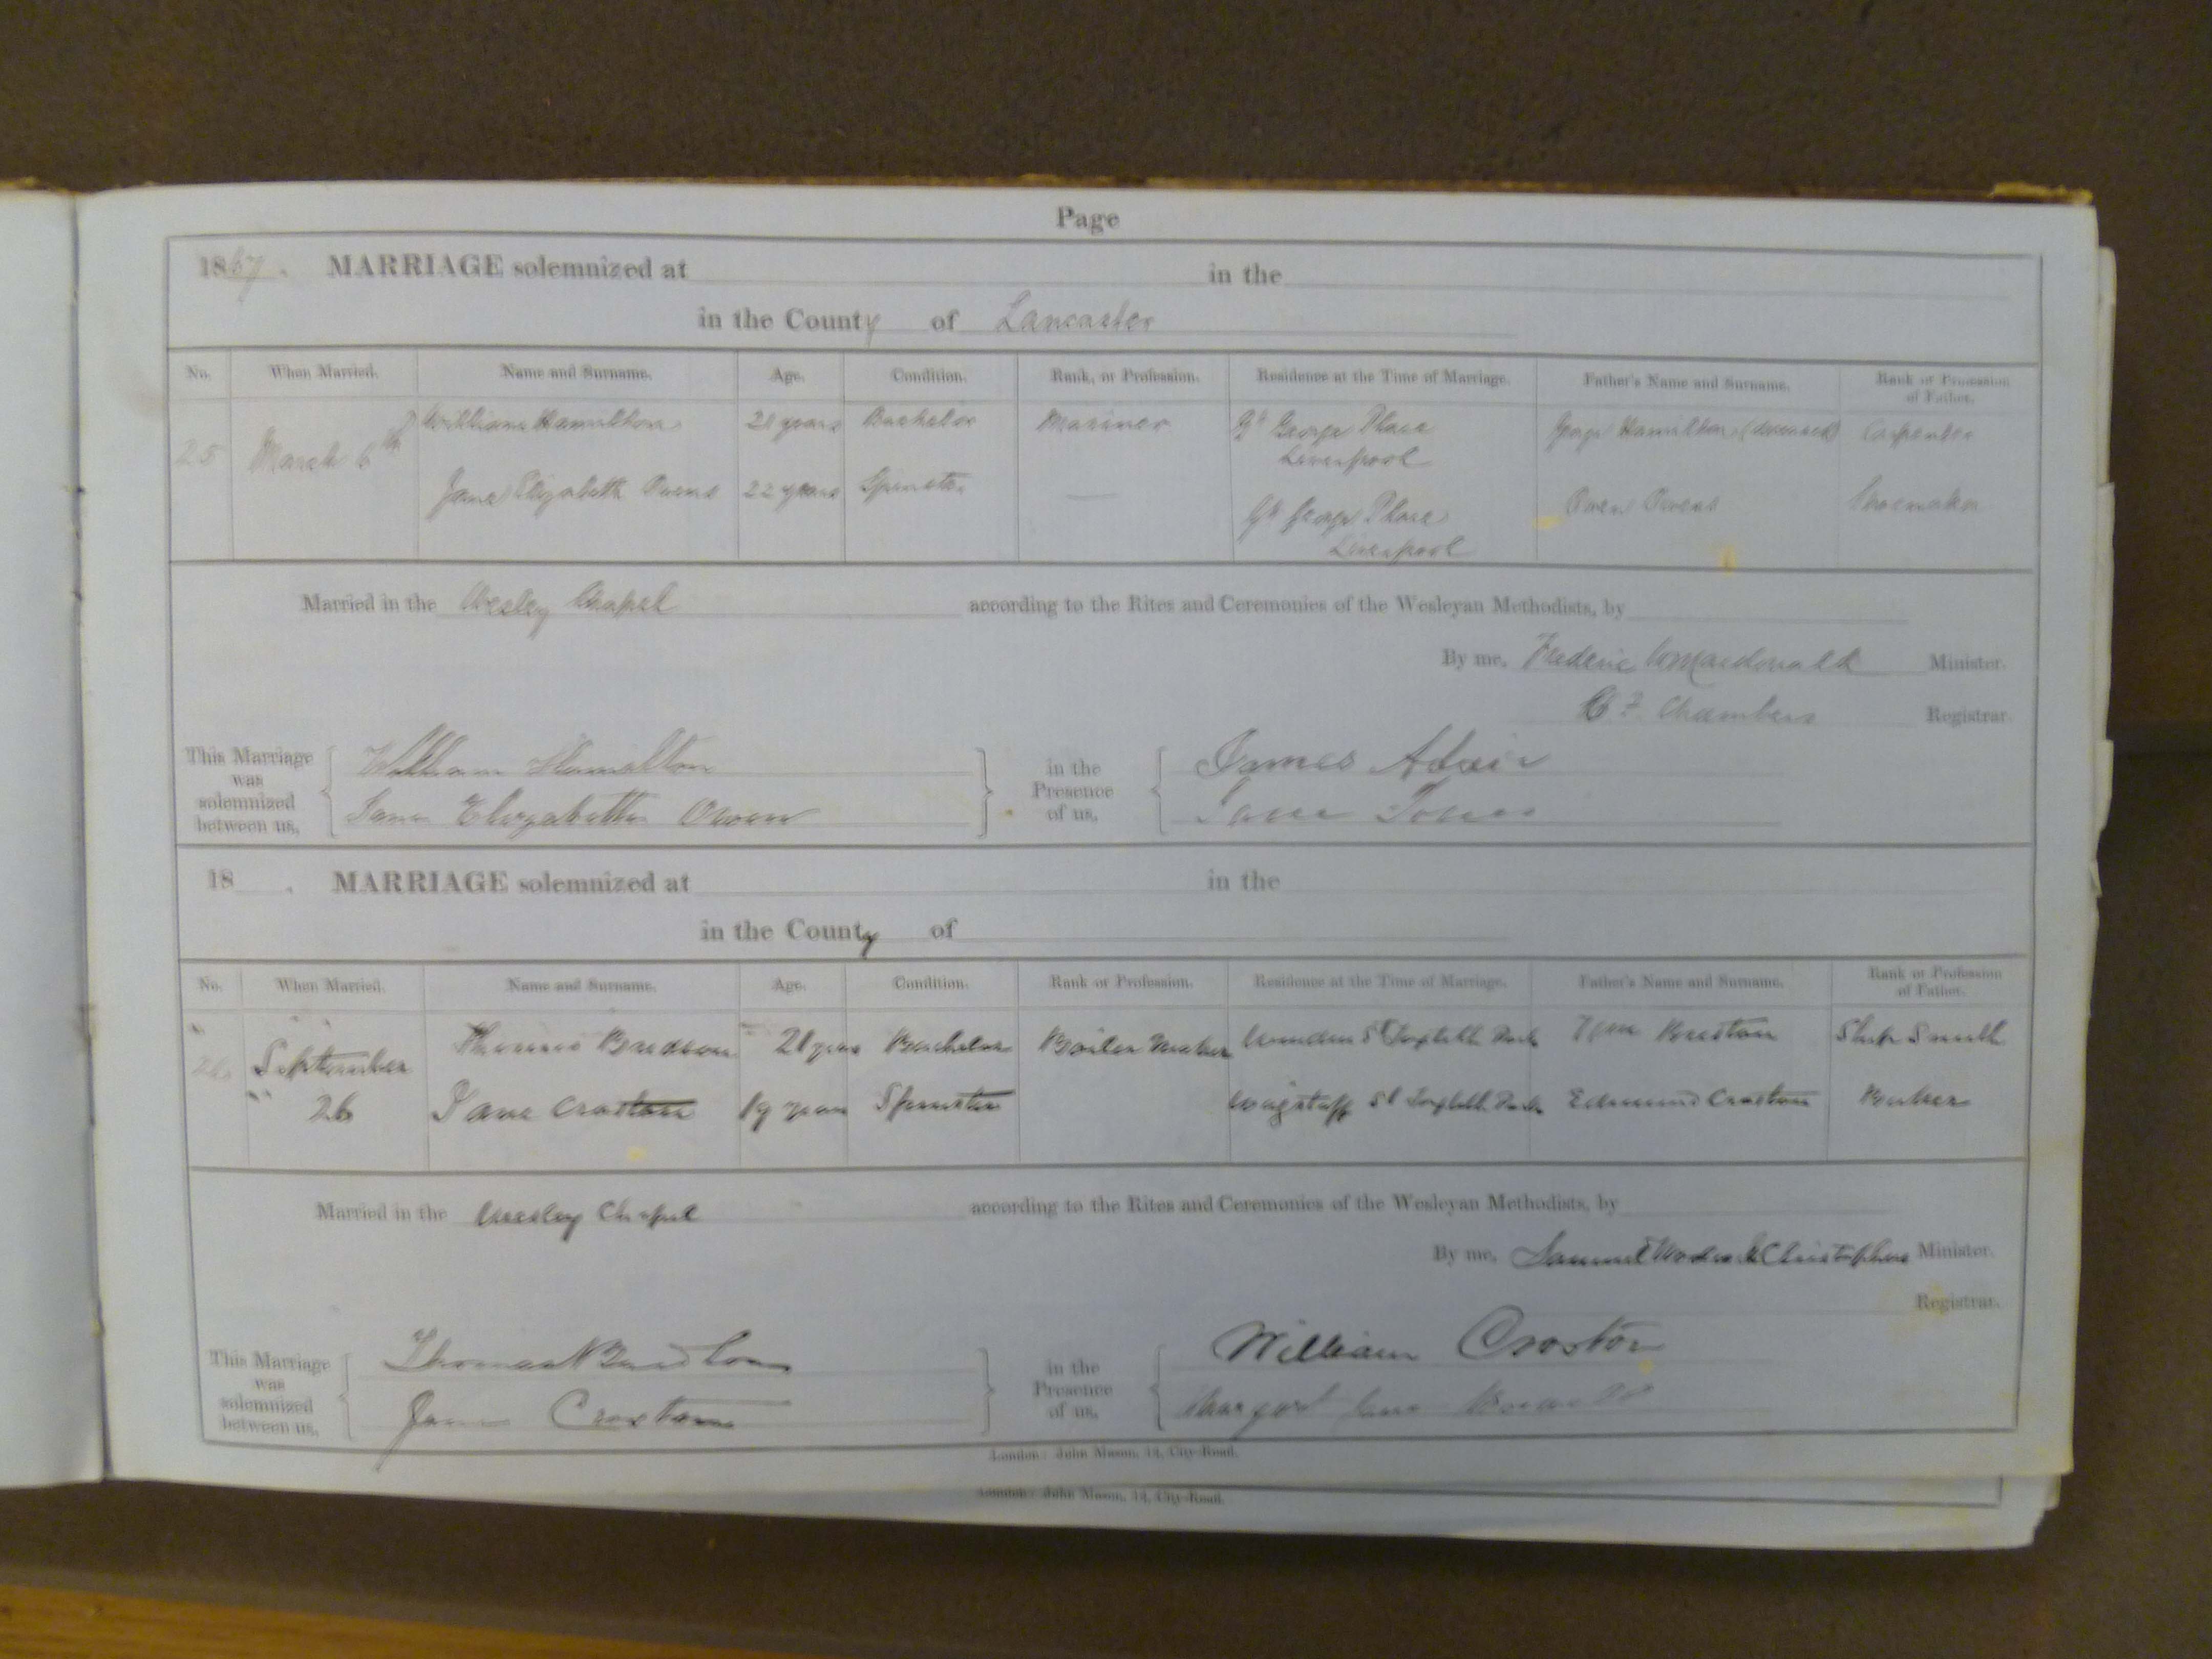 Page
1867. MARRIAGE solemnized at in the
in the County of Lancaster
No. When Married. Name and Surname. Age. Condition. Rank, or Profession. Residence at the Time of Marriage. Father's Name and Surname. Rank or Profession of Father.
25 March 6th William Hamilton 21 years Bachelor Mariner Gt George Place Liverpool George Hamilton (deceased) Carpenter
Jane Elizabeth Owens 22 years Spinster — Gt George Place Liverpool Owen Owens Shoemaker
Married in the Wesley Chapel according to the Rites and Ceremonies of the Wesleyan Methodists, by
By me, Frederic Macdonald Minister.
Chambers Registrar.
This Marriage was solemnized between us, William Hamilton in the Presence of us, James Adair
Jane Elizabeth Owens Jane Jones
18 . MARRIAGE solemnized at in the
in the County of
No. When Married. Name and Surname. Age. Condition. Rank or Profession. Residence at the Time of Marriage. Father's Name and Surname. Rank or Profession of Father.
26 September 26 Thomas 21 years Bachelor Boiler Maker St Toxteth Park Ship Smith
Jane Croston 19 years Spinster Wagstaff St Toxteth Park Edmund Croston Baker
Married in the Wesley Chapel according to the Rites and Ceremonies of the Wesleyan Methodists, by
By me, Samuel Christophers Minister.
Registrar.
This Marriage was solemnized between us, Thomas in the Presence of us, William Croston
Jane Croston Margaret Jane
London: John Mason, 14, City-Road.
London: John Mason, 14, City-Road.